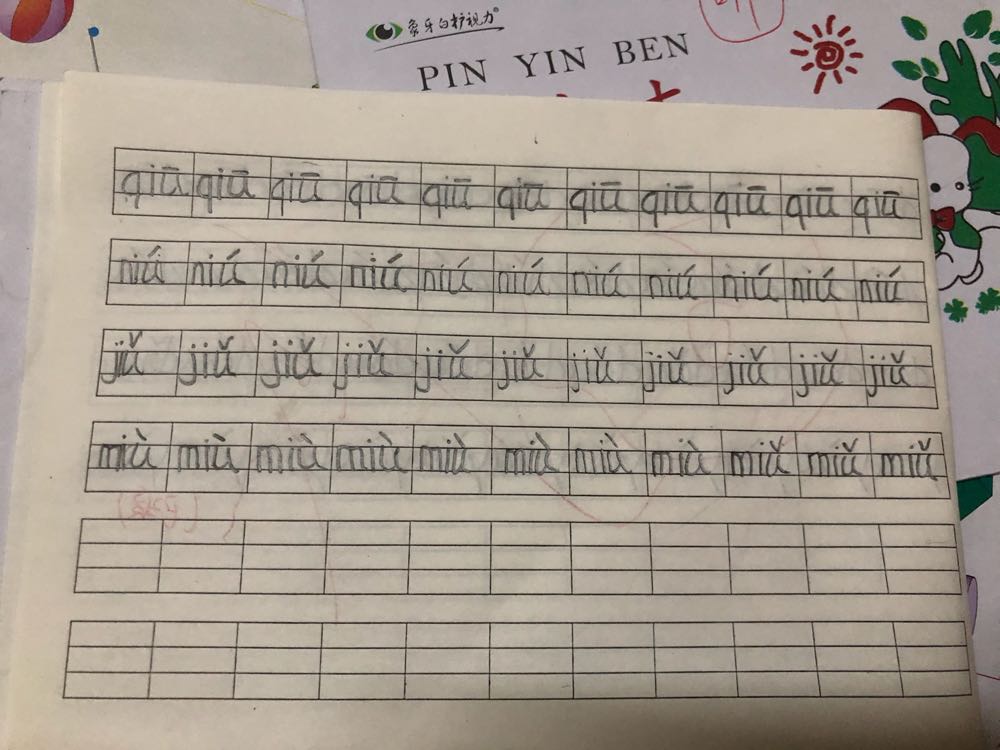 象牙白护视力®
PIN YIN BEN
qiū qiū qiū qiū qiū qiū qiū qiū qiū qiū qiū
niú niú niú niú niú niú niú niú niú niú niú
jiǔ jiǔ jiǔ jiǔ jiǔ jiǔ jiǔ jiǔ jiǔ jiǔ jiǔ
miù miù miù miù miù miù miù miù miǔ miǔ miǔ